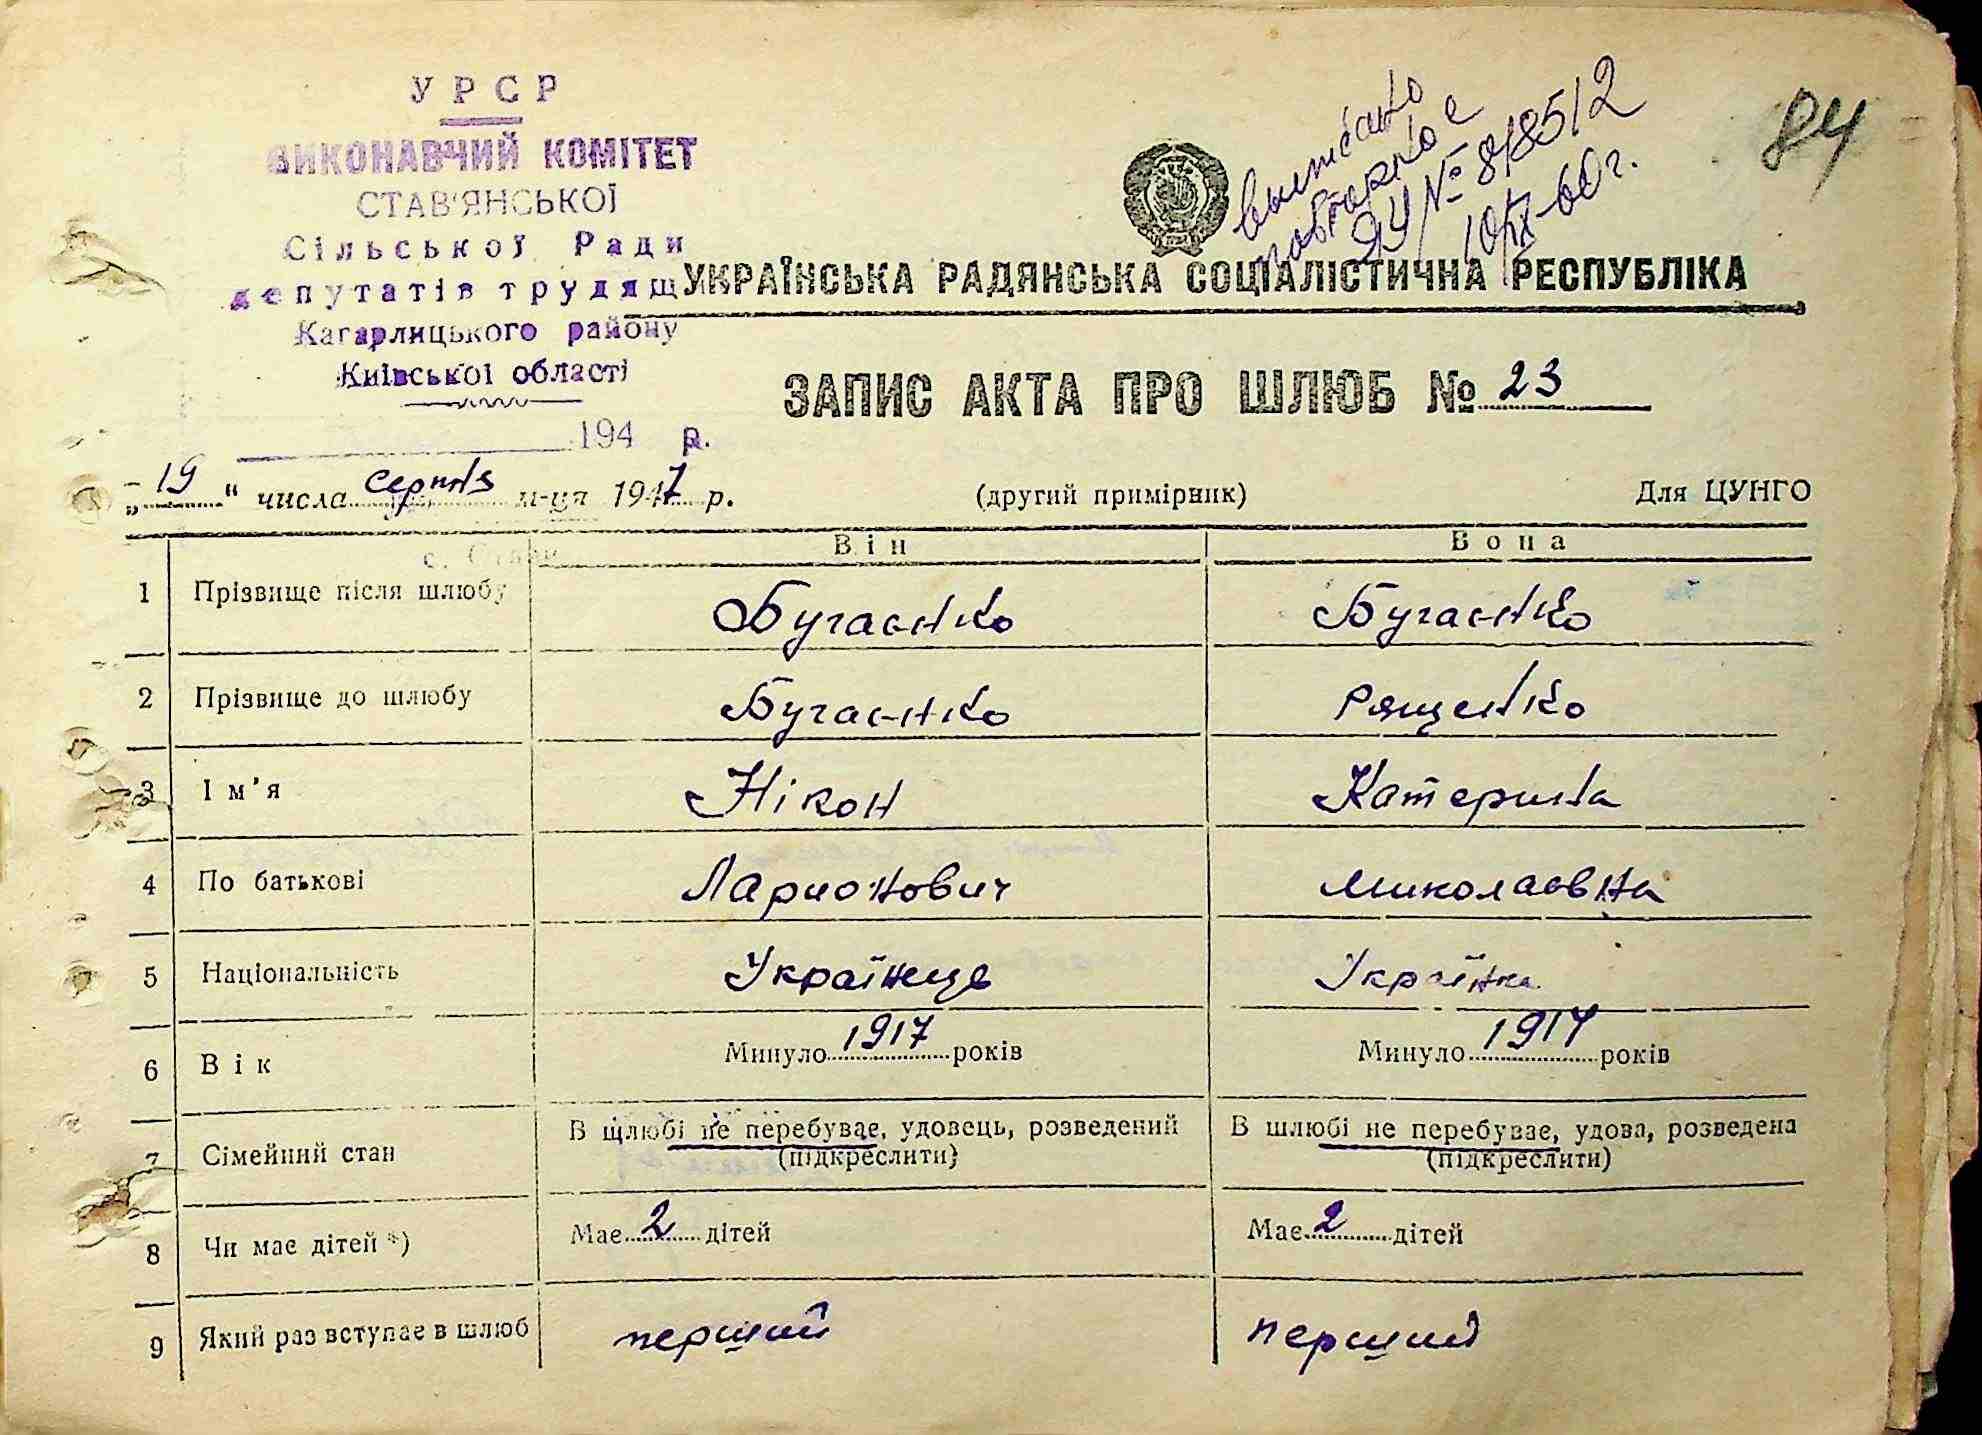 УРСР
ВИКОНАВЧИЙ КОМІТЕТ
СТАВ'ЯНСЬКОЇ
Сільської Ради
депутатів трудящ
Кагарлицького району
Київської області
194 р.
84
выписано
повторное
ЯУ № 8/8512
10/IX-60г.
УКРАЇНСЬКА РАДЯНСЬКА СОЦІАЛІСТИЧНА РЕСПУБЛІКА
ЗАПИС АКТА ПРО ШЛЮБ № 23
„19“ числа серпня м-ця 1947 р. (другий примірник) Для ЦУНГО
Він Вона
1 Прізвище після шлюбу Бугаєнко Бугаєнко
2 Прізвище до шлюбу Бугаєнко Рященко
3 Ім'я Нікон Катерина
4 По батькові Ларионович Миколаєвна
5 Національність Українець Українка
6 Вік Минуло 1917 років Минуло 1917 років
7 Сімейний стан В шлюбі не перебуває, удовець, розведений (підкреслити) В шлюбі не перебуває, удова, розведена (підкреслити)
8 Чи має дітей *) Має 2 дітей Має 2 дітей
9 Який раз вступає в шлюб перший перший